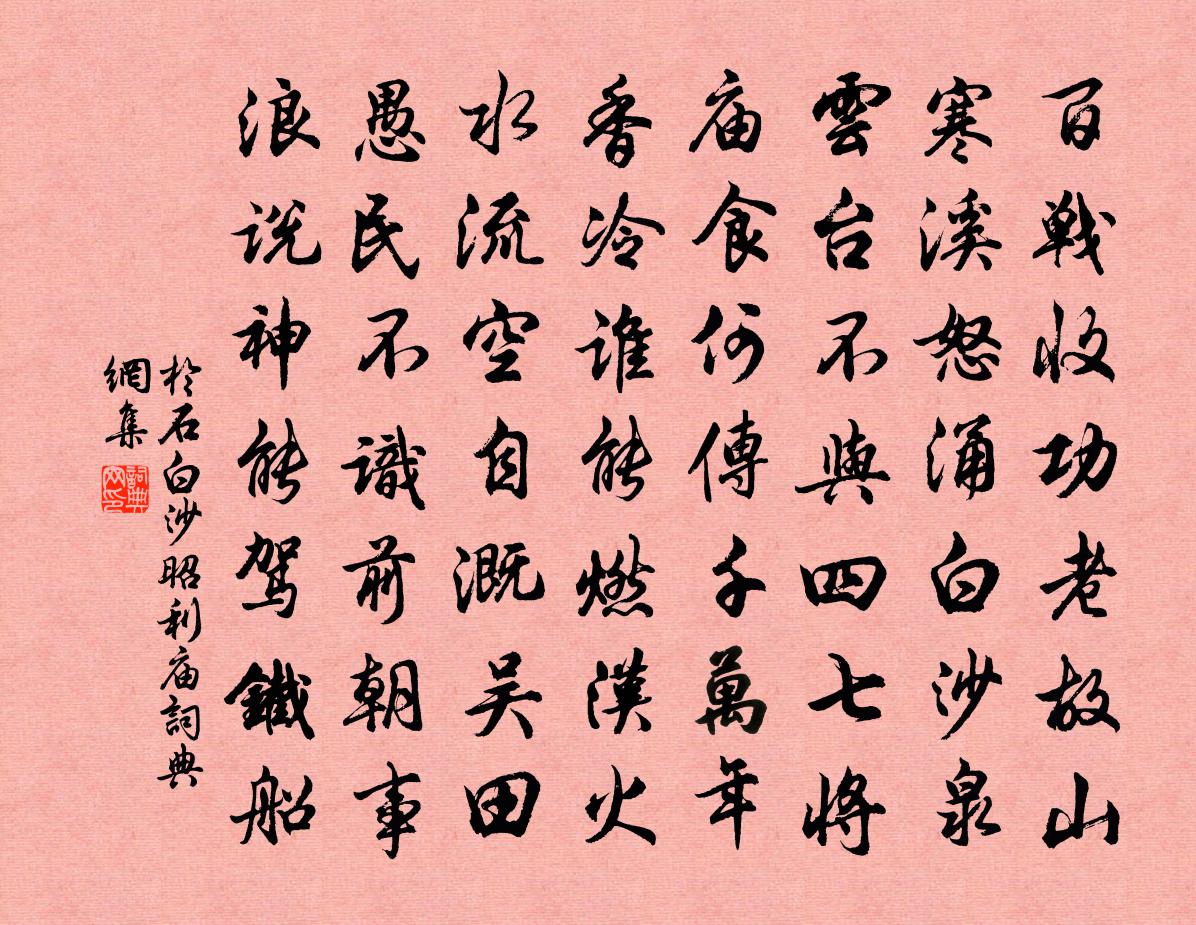 百戰收功老故山
寒溪怒涌白沙泉
雲台不與四七將
庙食何傳千萬年
香冷誰能燃漢火
水流空自溉吴田
愚民不識前朝事
浪説神能駕鐵船
於石白沙昭利庙詞典
網集
詞典
网印